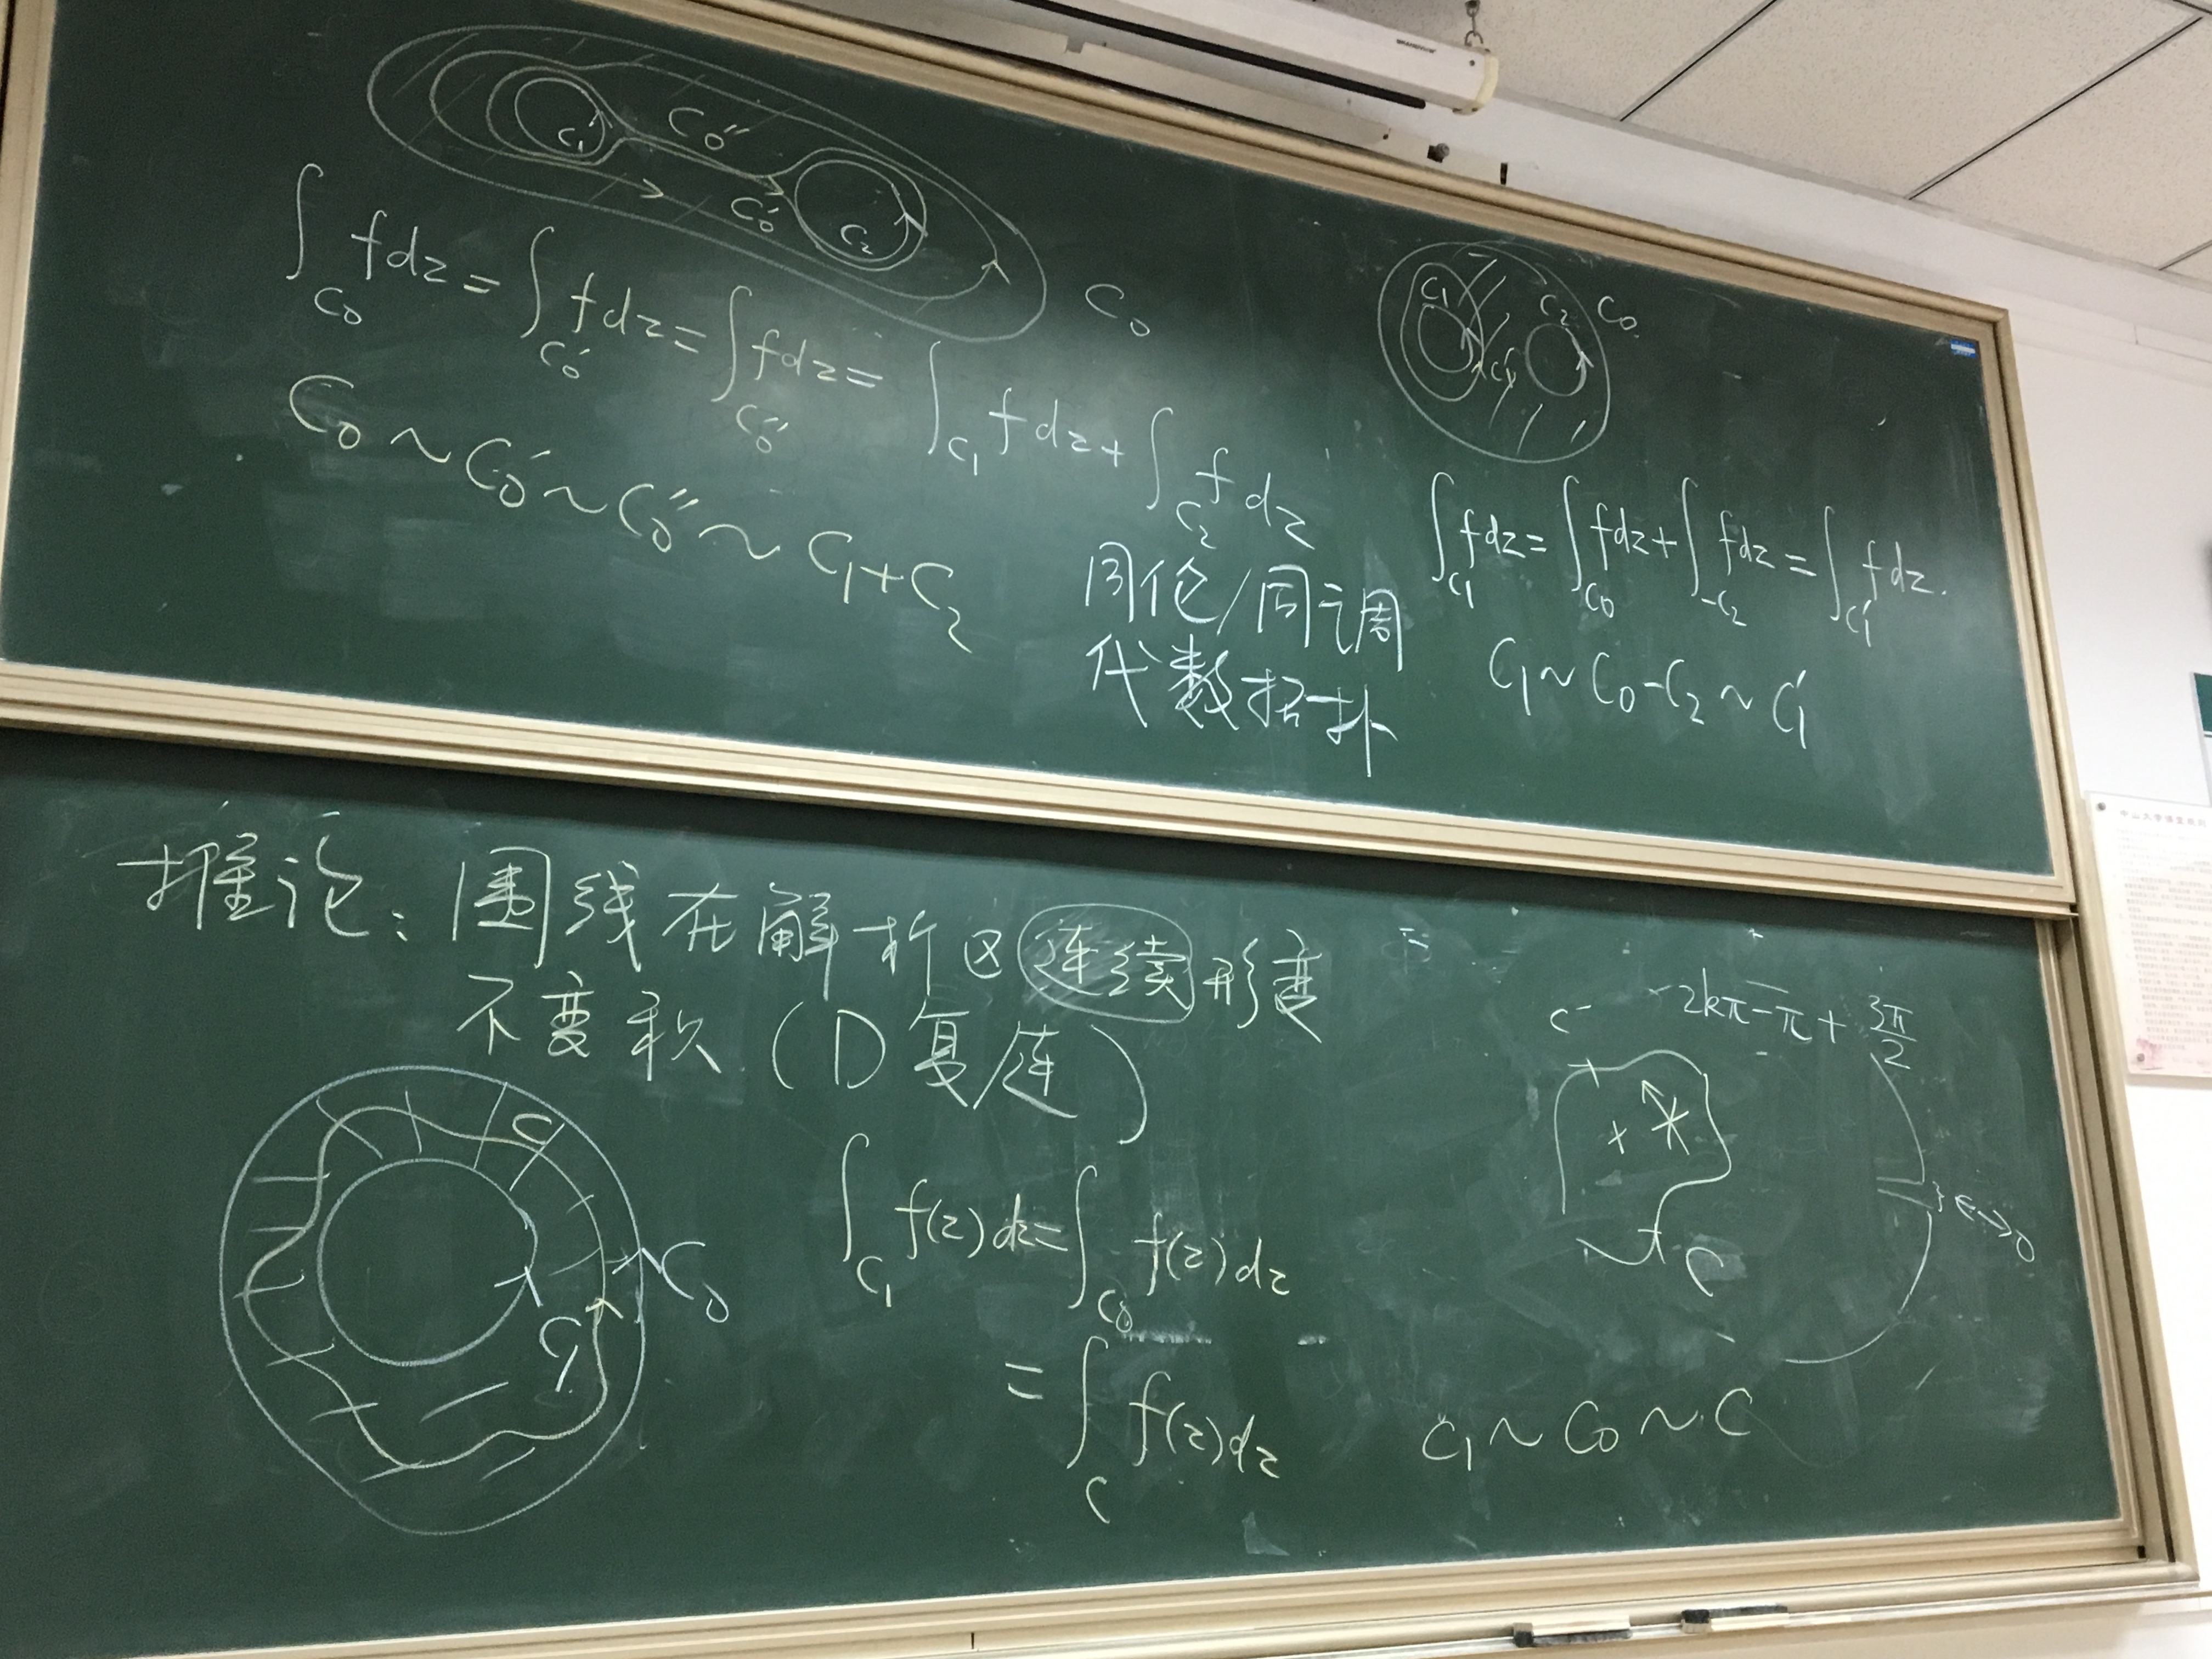 C₁ C₀″ C₀′ C₂ C₀
∫_{C₀} fdz = ∫_{C₀′} fdz = ∫_{C₀″} fdz = ∫_{C₁} fdz + ∫_{C₂} fdz
C₀ ~ C₀′ ~ C₀″ ~ C₁+C₂
同伦/同调
代数拓扑
C₁ C₂ C₀ C₁′
∫_{C₁} fdz = ∫_{C₀} fdz + ∫_{-C₂} fdz = ∫_{C₁′} fdz.
C₁ ~ C₀-C₂ ~ C₁′
推论: 围线在解析区连续形变
不变积(D复连)
C C₀ C₁
∫_{C₁} f(z)dz = ∫_{C₀} f(z)dz
= ∫_{C} f(z)dz
C₁ ~ C₀ ~ C
C⁻ 2kπ-π+3π/2
C
}ε→0
中山大学课堂规则